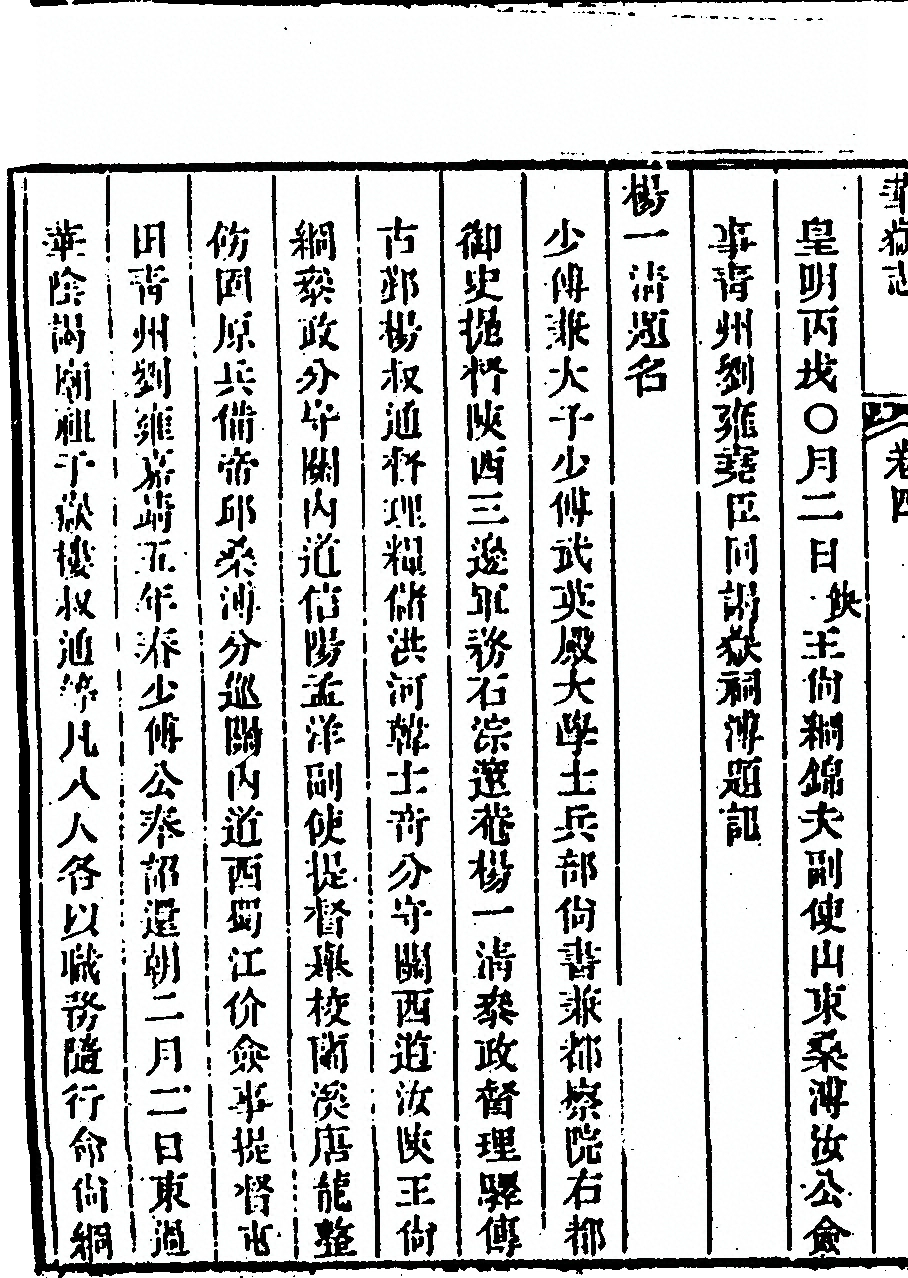 華嶽志 卷四
皇明丙戌〇月二日缺王尙絅錦夫副使山東桑溥汝公僉
事靑州劉雍堯臣同謁嶽祠溥題記
楊一淸題名
少傅兼太子少傅武英殿大學士兵部尙書兼都察院右都
御史提督陝西三邊軍務石淙邃菴楊一淸叅政督理驛傳
古鄞楊叔通督理糧儲洪河韓士奇分守關西道汝陝王尙
絅叅政分守關內道信陽孟洋副使提督學校蘭溪唐龍整
飭固原兵備帝邱桑溥分巡關內道西蜀江价僉事提督屯
田靑州劉雍嘉靖五年春少傅公奉詔還朝二月二日東過
華陰謁廟祖于嶽樓叔通等凡八人各以職務隨行命尙絅